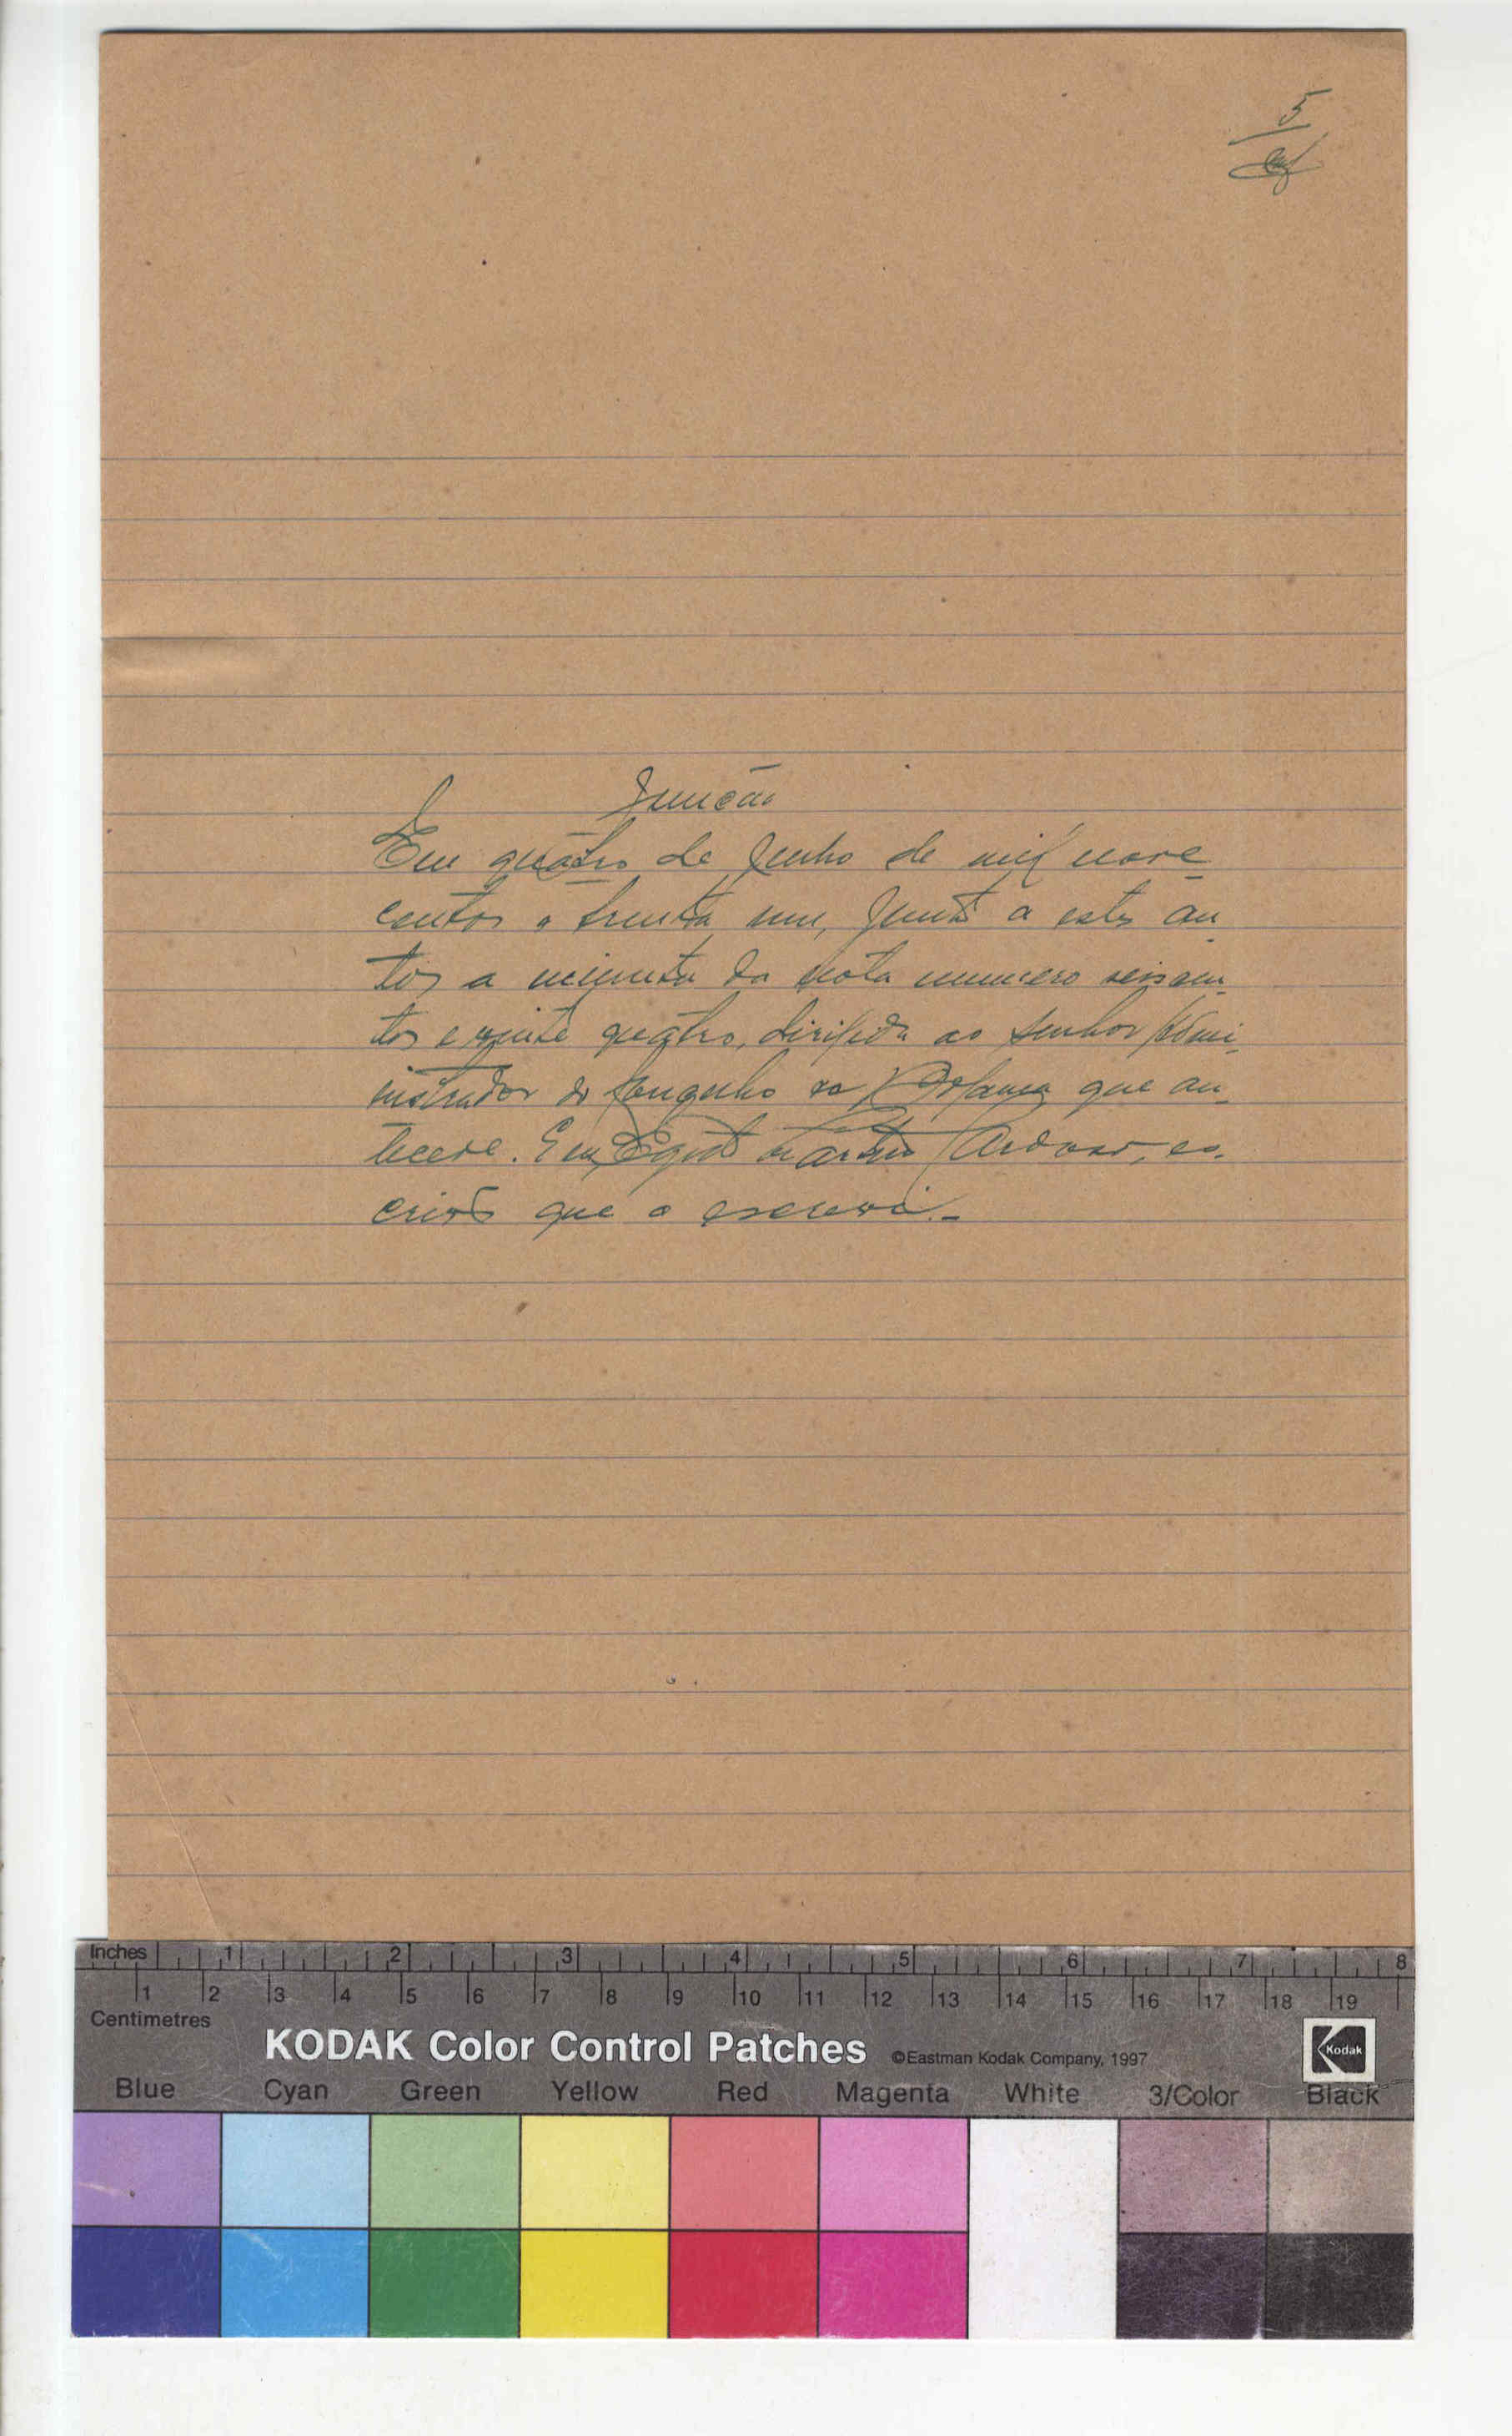 5
Junção
Em quatro de Junho de mil nove
centos e trinta um, junto a estes au
tos a minuta da nota numero seiscen
tos e vinte quatro, dirigida ao Senhor Admi
nistrador do Concelho da que an
tecede. Eu, Cardoso, es
crivão que o escrevi.-
Inches 1 2 3 4 5 6 7 8
1 2 3 4 5 6 7 8 9 10 11 12 13 14 15 16 17 18 19
Centimetres
KODAK Color Control Patches ©Eastman Kodak Company, 1997 Kodak
Blue Cyan Green Yellow Red Magenta White 3/Color Black